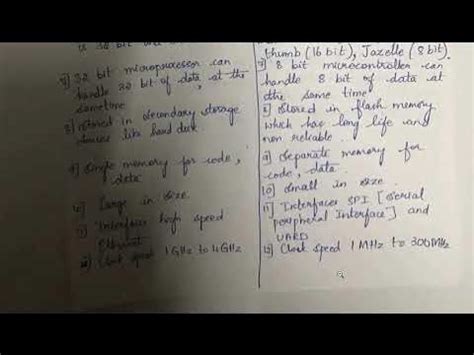 7] 32 bit microprocessor can
handle 32 bit of data, at the
sametime
8] Stored in secondary storage
devices like hard disk.
9] Single memory for code,
data
Large in size
Interfaces high speed
Ethernet
Clock speed 1 GHz to 4GHz
thumb (16 bit), Jazelle (8 bit).
7] 8 bit microcontroller can
handle 8 bit of data at
the same time
8] Stored in flash memory
which has long life and
non reliable.
9] Separate memory for
code, data.
10] Small in size
11] Interfaces SPI [Serial
peripheral Interface] and
UARD
12] Clock speed 1 MHz to 300MHz